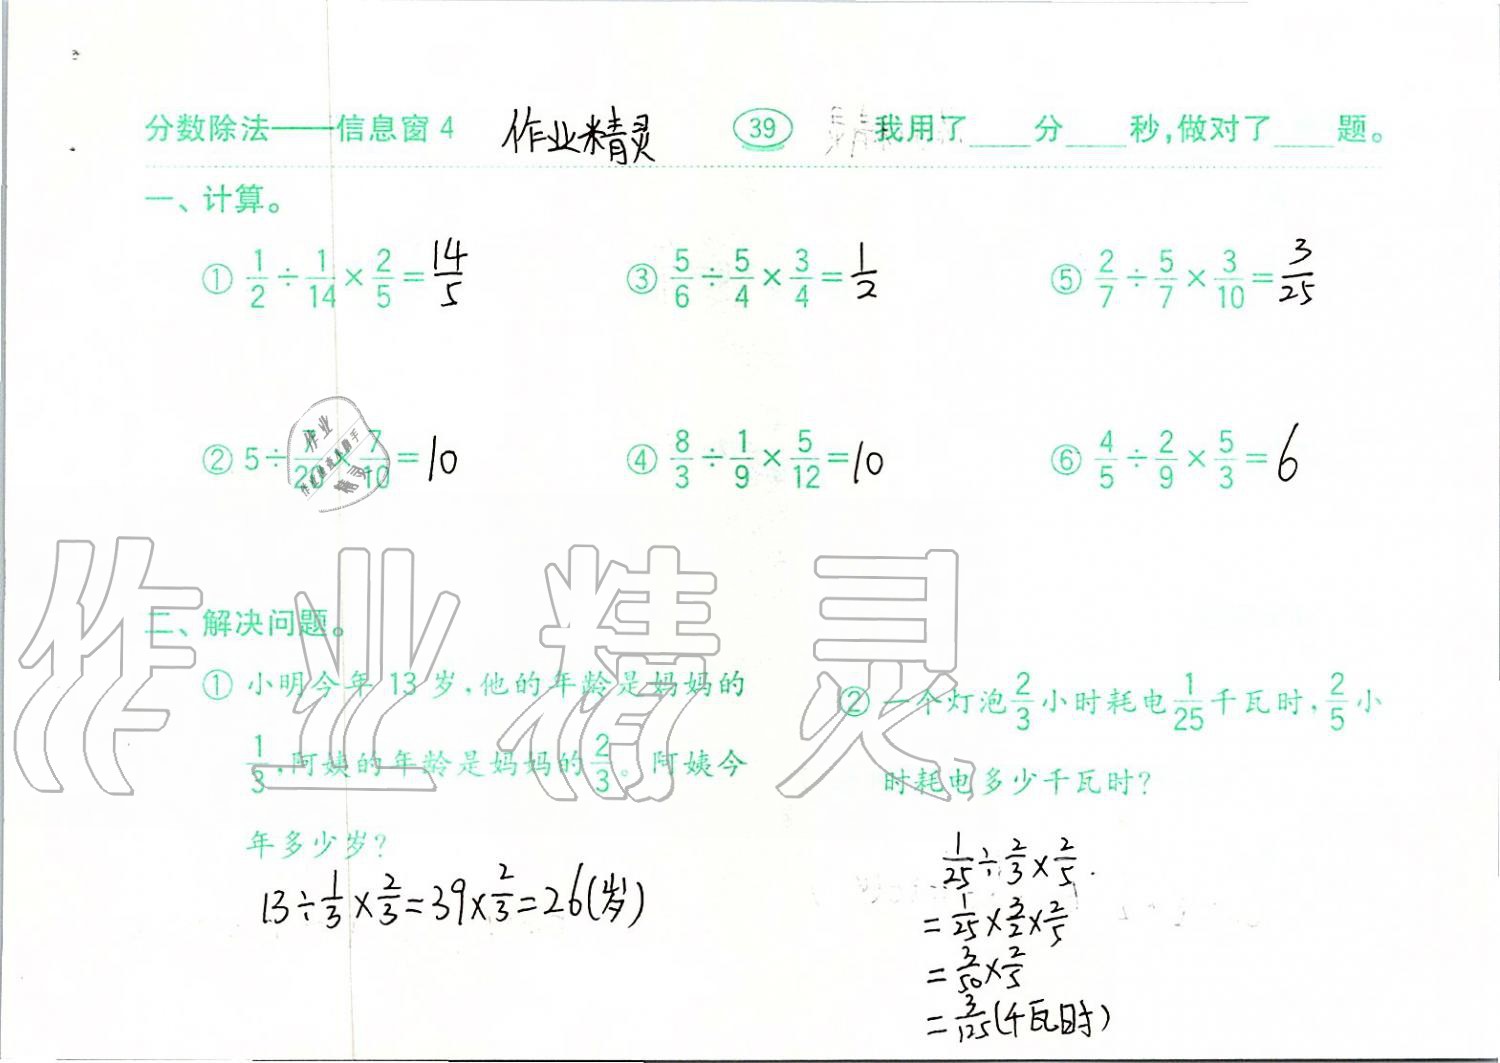 分数除法——信息窗4 作业精灵 39 我用了____分____秒,做对了____题。
一、计算。
① 1/2 ÷ 1/14 × 2/5 = 14/5 ③ 5/6 ÷ 5/4 × 3/4 = 1/2 ⑤ 2/7 ÷ 5/7 × 3/10 = 3/25
② 5 ÷ /20 × 7/10 = 10 ④ 8/3 ÷ 1/9 × 5/12 = 10 ⑥ 4/5 ÷ 2/9 × 5/3 = 6
作业
精灵
作业精灵
二、解决问题。
① 小明今年13岁,他的年龄是妈妈的
1/3,阿姨的年龄是妈妈的2/3。阿姨今
年多少岁?
13 ÷ 1/3 × 2/3 = 39 × 2/3 = 26(岁)
② 一个灯泡2/3小时耗电1/25千瓦时,2/5小
时耗电多少千瓦时?
1/25 ÷ 2/3 × 2/5
= 1/25 × 3/2 × 2/5
= 3/50 × 2/5
= 3/125(千瓦时)